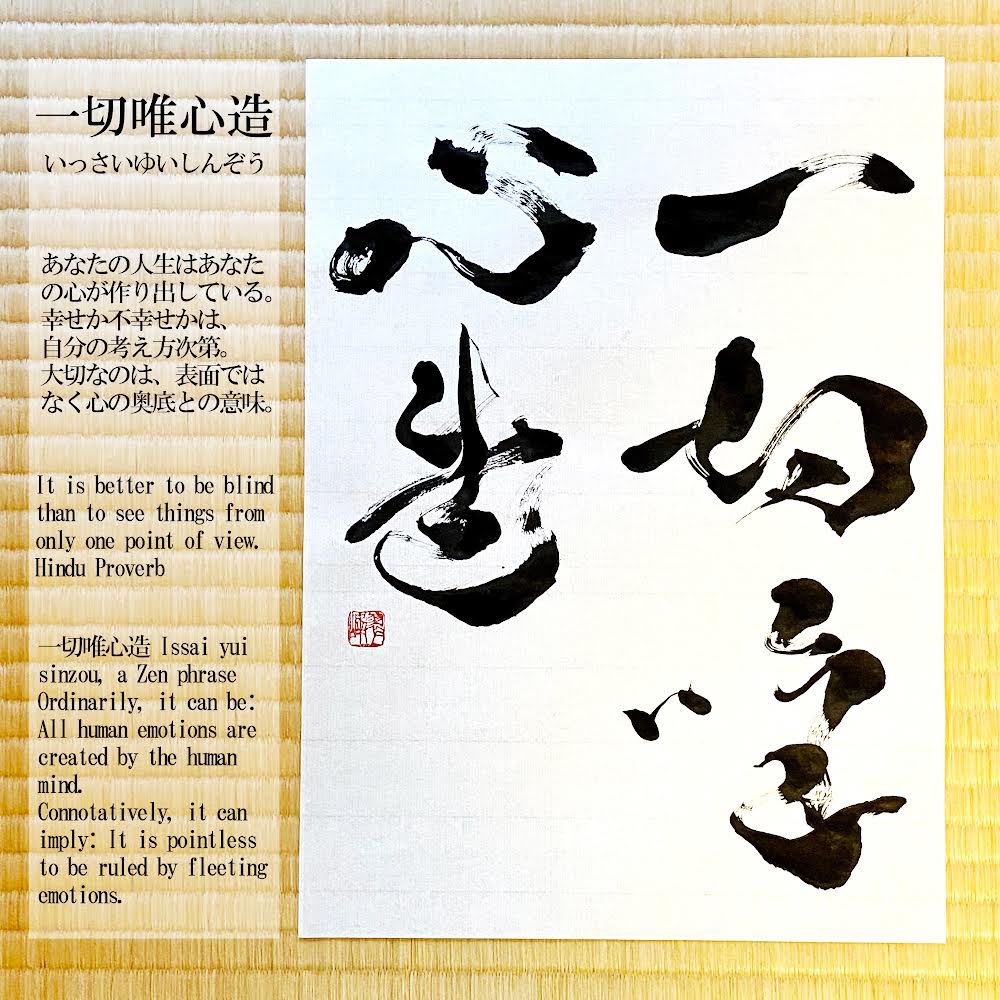 一切唯心造
いっさいゆいしんぞう
あなたの人生はあなた
の心が作り出している。
幸せか不幸せかは、
自分の考え方次第。
大切なのは、表面では
なく心の奥底との意味。
It is better to be blind
than to see things from
only one point of view.
Hindu Proverb
一切唯心造 Issai yui
sinzou, a Zen phrase
Ordinarily, it can be:
All human emotions are
created by the human
mind.
Connotatively, it can
imply: It is pointless
to be ruled by fleeting
emotions.
一切唯
心造